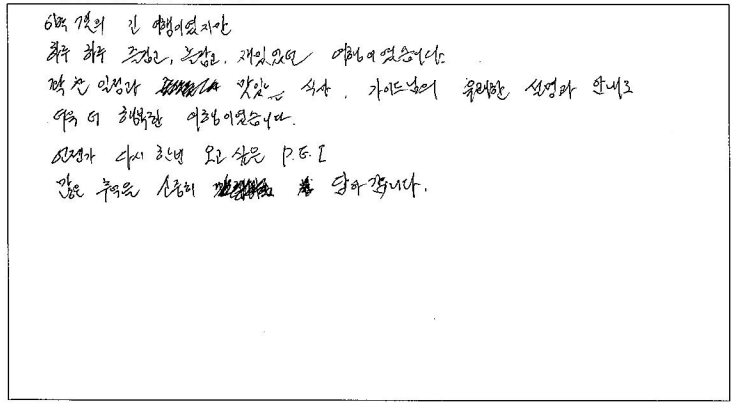 6박 7일의 긴 여행이였지만
하루 하루 즐겁고, 놀랍고, 재있었던 여행이였습니다.
꽉 찬 일정과 맛있는 식사, 가이드님의 유쾌한 설명과 안내로
더욱 더 행복한 여행이였습니다.
언젠가 다시 한번 오고 싶은 P.E.I
많은 추억을 소중히 담아 갑니다.